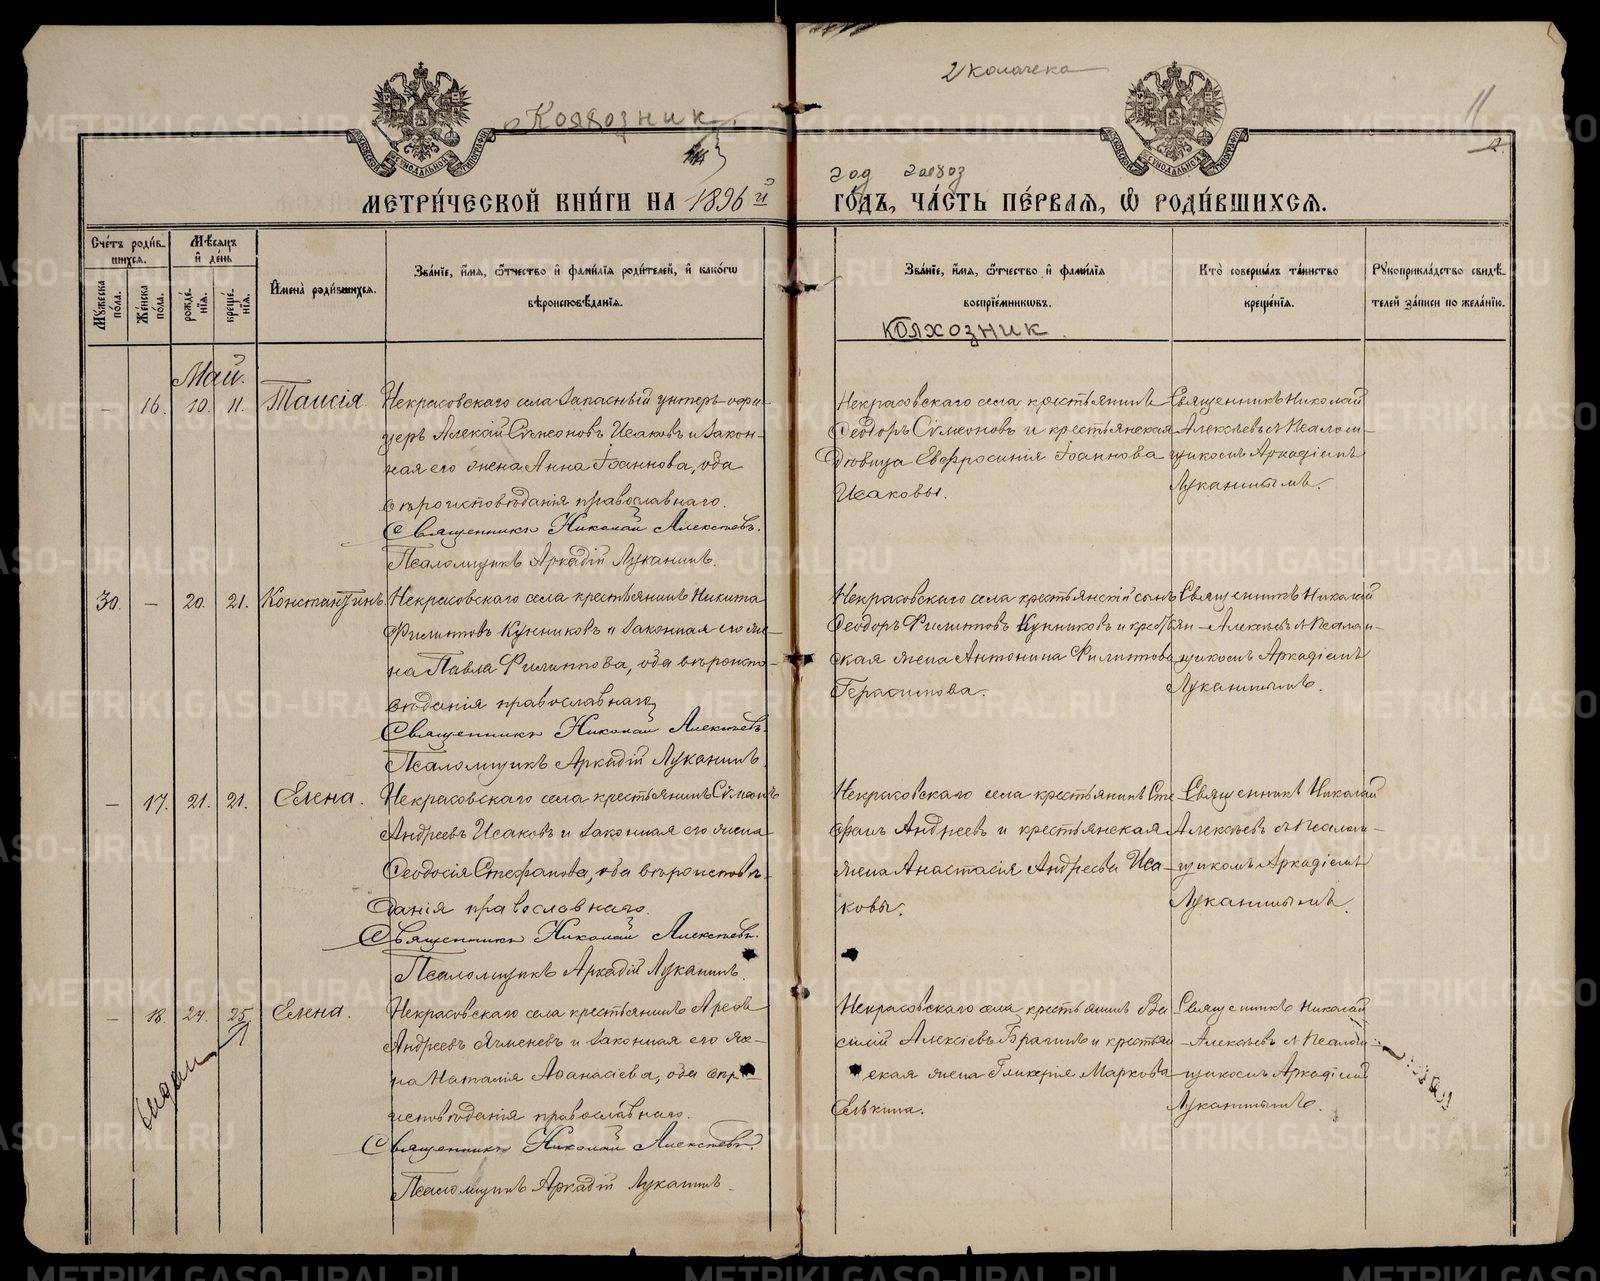 2 колачека
Колхозник
11
МЕТРИ́ЧЕСКОЙ КНИ́ГИ НА 1896й
год
ГО́ДЪ, ЧА́СТЬ ПЕ́РВАЯ, Ѡ РОДИ́ВШИХСЯ.
Сче́тъ роди́в-
шихся.
Му́жеска по́ла.
Же́нска по́ла.
Мѣ́сяцъ и҆ де́нь
рожде́нїя.
креще́нїя.
И҆мена̀ роди́вшихся.
Зва́нїе, и҆́мя, ѻ҆́тчество и҆ фами́лїя роди́телей, и҆ како́гѡ
вѣроисповѣ́данїя.
Зва́нїе, и҆́мя, ѻ҆́тчество и҆ фами́лїя
воспрїе́мникѡвъ.
Кто̀ соверша́лъ та́инство
креще́нїя.
Рꙋкоприкла́дство свидѣ́-
телей за́писи по жела́нїю.
колхозник
Май.
– 16. 10. 11. Таисія.
Некрасовскаго села запасный унтеръ-офи-
церъ Алексій Сѵмеоновъ Исаковъ и закон-
ная его жена Анна Іоаннова, оба
вѣроисповѣданія православнаго.
Священникъ Николай Алексѣевъ.
Псаломщикъ Аркадій Луканинъ.
Некрасовскаго села крестьянинъ
Ѳеодоръ Сѵмеоновъ и крестьянская
дѣвица Евфросинія Іоаннова
Исаковы.
Священникъ Николай
Алексѣевъ с псалом-
щикомъ Аркадіемъ
Луканинымъ.
30. – 20. 21. Константинъ.
Некрасовскаго села крестьянинъ Никита
Филиповъ Кунниковъ и законная его же-
на Павла Филиппова, оба вѣроиспо-
вѣданія православнаго
Священникъ Николай Алексѣевъ.
Псаломщикъ Аркадій Луканинъ.
Некрасовскаго села крестьянскій сынъ
Ѳеодоръ Филиповъ Кунниковъ и крестьян-
ская жена Антонина Филиппова
Герасимова.
Священникъ Николай
Алексѣевъ с псалом-
щикомъ Аркадіемъ
Луканинымъ.
– 17. 21. 21. Елена.
Некрасовскаго села крестьянинъ Сѵмеонъ
Андреевъ Исаковъ и законная его жена
Ѳеодосія Стефанова, оба вѣроисповѣ-
данія православнаго.
Священникъ Николай Алексѣевъ.
Псаломщикъ Аркадій Луканинъ.
Некрасовскаго села крестьянинъ Сте-
фанъ Андреевъ и крестьянская
жена Анастасія Андреева Иса-
ковы.
Священникъ Николай
Алексѣевъ с псалом-
щикомъ Аркадіемъ
Луканинымъ.
– 18. 24. 25. Елена.
Некрасовскаго села крестьянинъ Арефа
Андреевъ Ячменевъ и законная его же-
на Наталія Аѳанасіева, оба вѣро-
исповѣданія православнаго.
Священникъ Николай Алексѣевъ.
Псаломщикъ Аркадій Луканинъ.
Некрасовскаго села крестьянинъ Ва-
силій Алексіевъ Брагинъ и крестьян-
ская жена Гликерія Маркова
Елькина.
Священникъ Николай
Алексѣевъ с псалом-
щикомъ Аркадіемъ
Луканинымъ.
выдан
METRIKI.GASO-URAL.RU